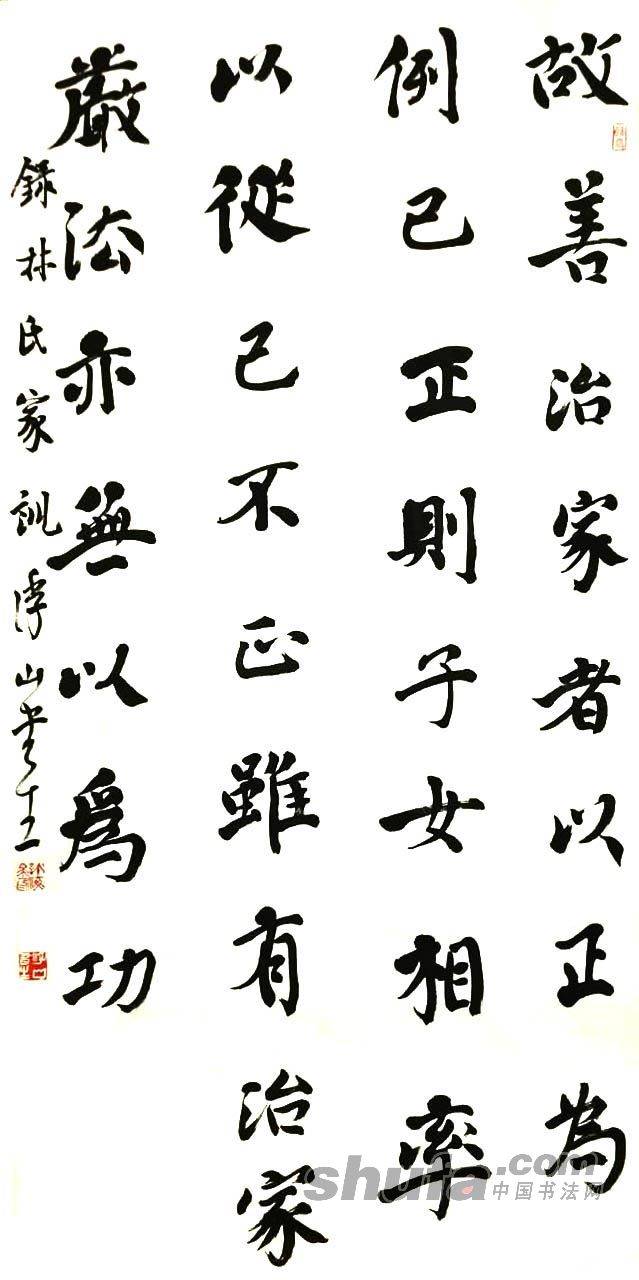 故善治家者以正為
例己正則子女相率
以從己不正雖有治家
嚴法亦無以爲功
錄林氏家訓 浮山書主
shufa.com
中国书法网